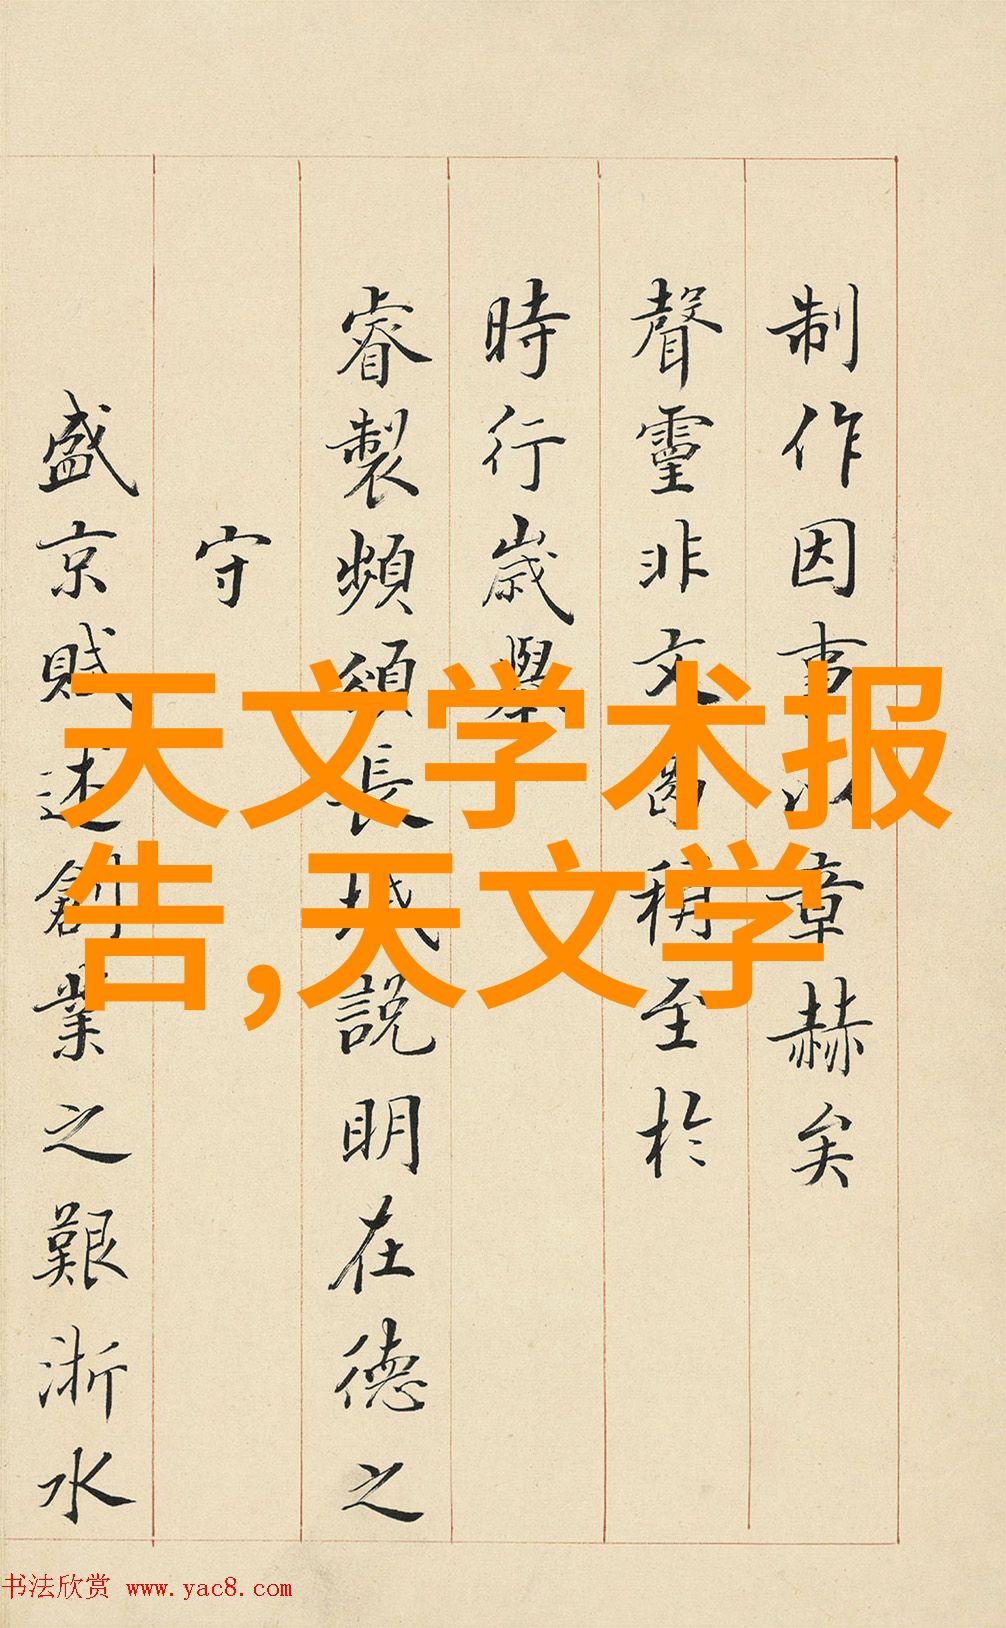 制作因事以章赫矣
聲靈非文曷稱至於
時行歲舉
睿製頻頒長城說明在德之
守
盛京賦述創業之艱浙水
天文学术报
告,天文学
书法欣赏 www.yac8.com